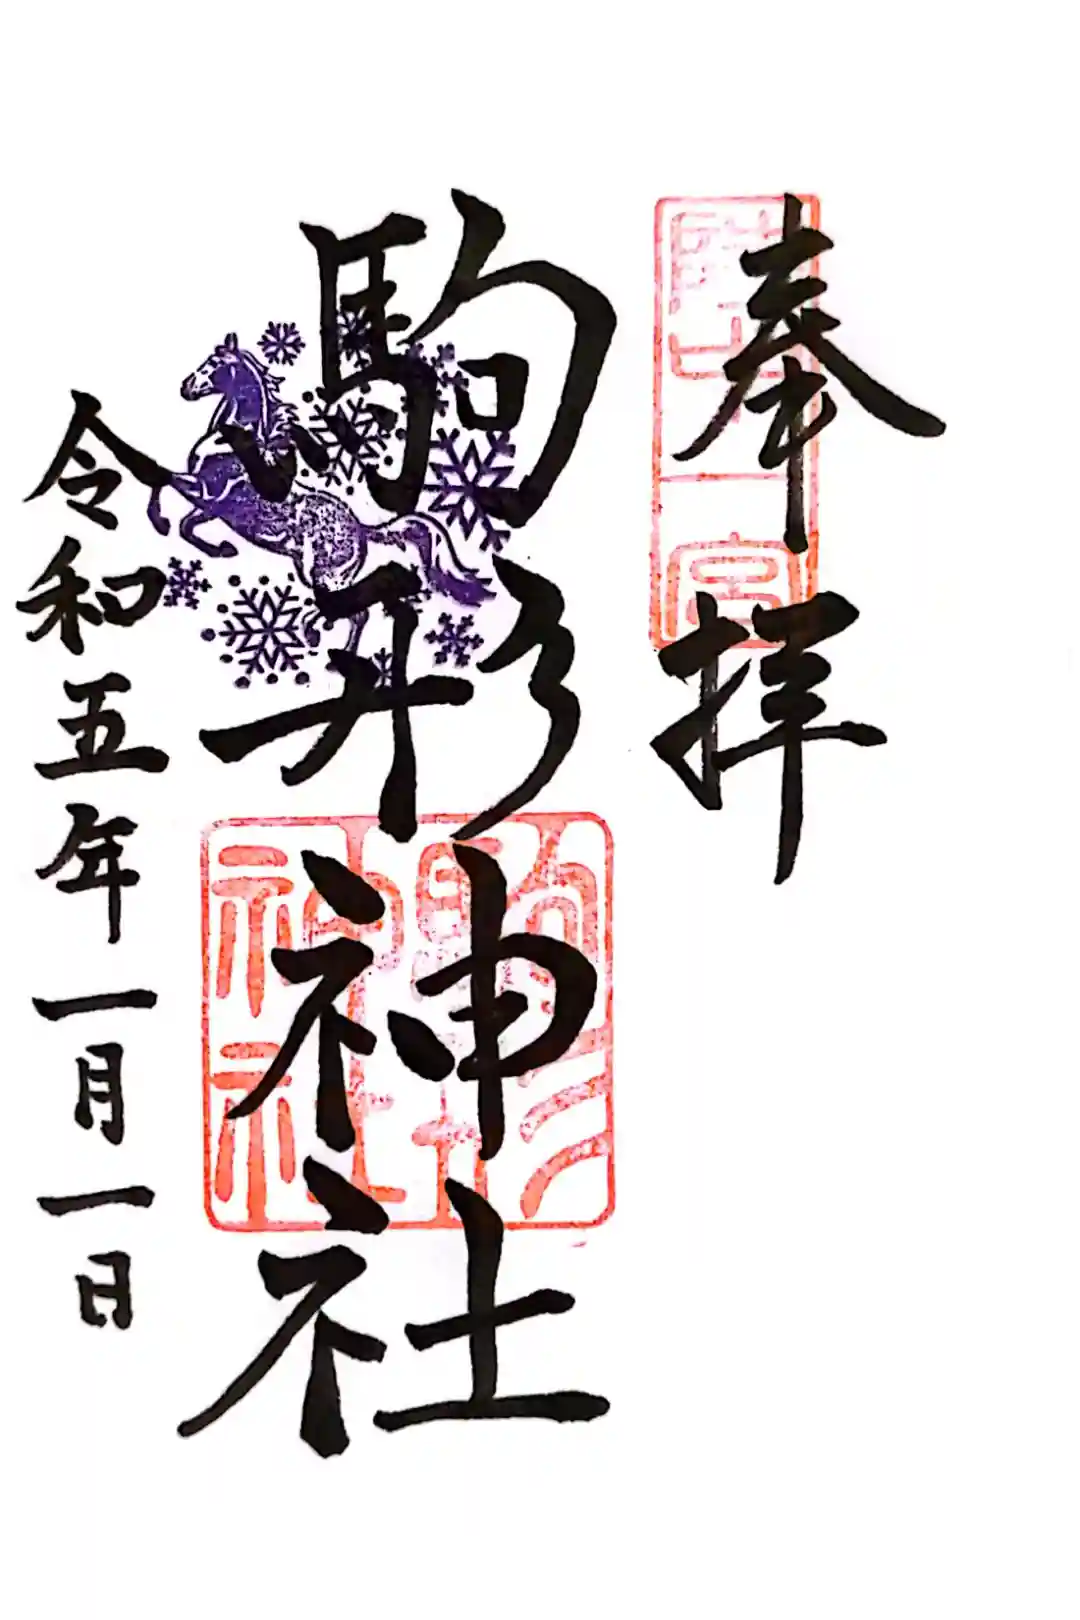 奉拝
陸中一宮
駒形神社
駒形神社
令和五年一月一日